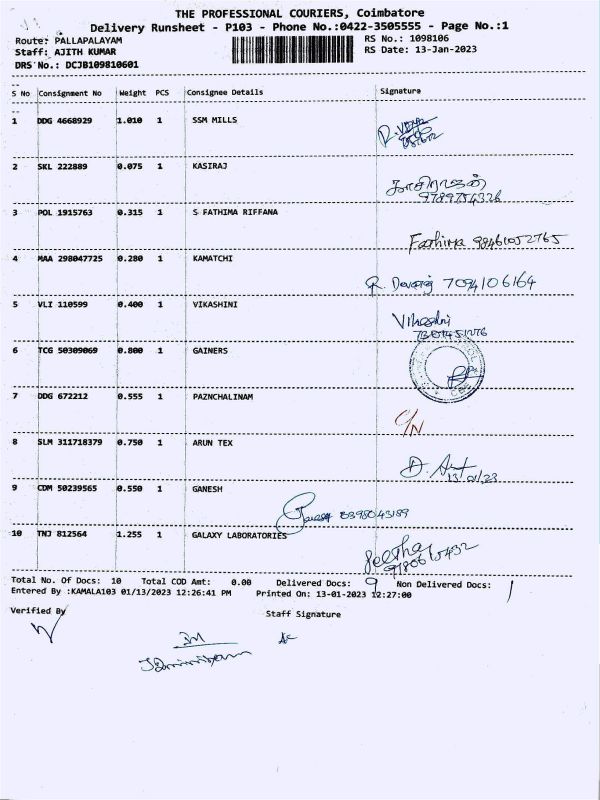 THE PROFESSIONAL COURIERS, Coimbatore
Delivery Runsheet - P103 - Phone No.:0422-3505555 - Page No.:1
Route: PALLAPALAYAM RS No.: 1098106
Staff: AJITH KUMAR RS Date: 13-Jan-2023
DRS No.: DCJB109810601
S No Consignment No Weight PCS Consignee Details Signature
1 DDG 4668929 1.010 1 SSM MILLS
2 SKL 222889 0.075 1 KASIRAJ
காசிராஜன்
9789754326
3 POL 1915763 0.315 1 S FATHIMA RIFFANA
Fathima
4 MAA 298047725 0.280 1 KAMATCHI
R. Devaraj 7094106164
5 VLI 110599 0.400 1 VIKASHINI
Vikashni
6 TCG 50309069 0.800 1 GAINERS
7 DDG 672212 0.555 1 PAZNCHALINAM
C/N
8 SLM 311718379 0.750 1 ARUN TEX
13/01/23
9 CDM 50239565 0.550 1 GANESH
Ganesh
10 TNJ 812564 1.255 1 GALAXY LABORATORIES
Total No. Of Docs: 10 Total COD Amt: 0.00 Delivered Docs: 9 Non Delivered Docs: 1
Entered By :KAMALA103 01/13/2023 12:26:41 PM Printed On: 13-01-2023 12:27:00
Verified By Staff Signature